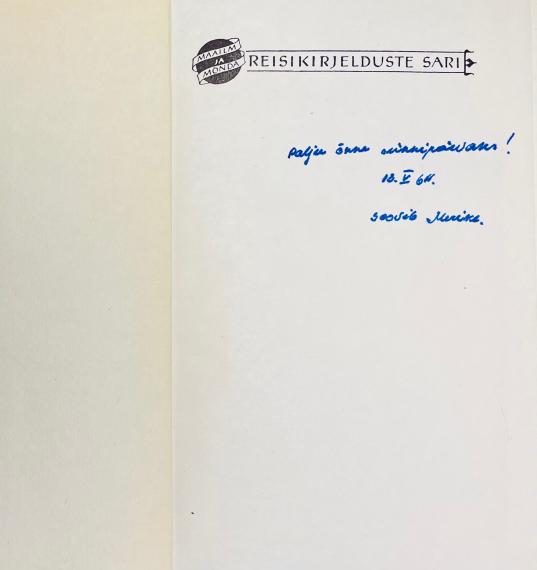 MAAILM
JA
MÕNDA
REISIKIRJELDUSTE SARI
Palju õnne sünnipäevaks!
18. V 64.
Soovib Merike.